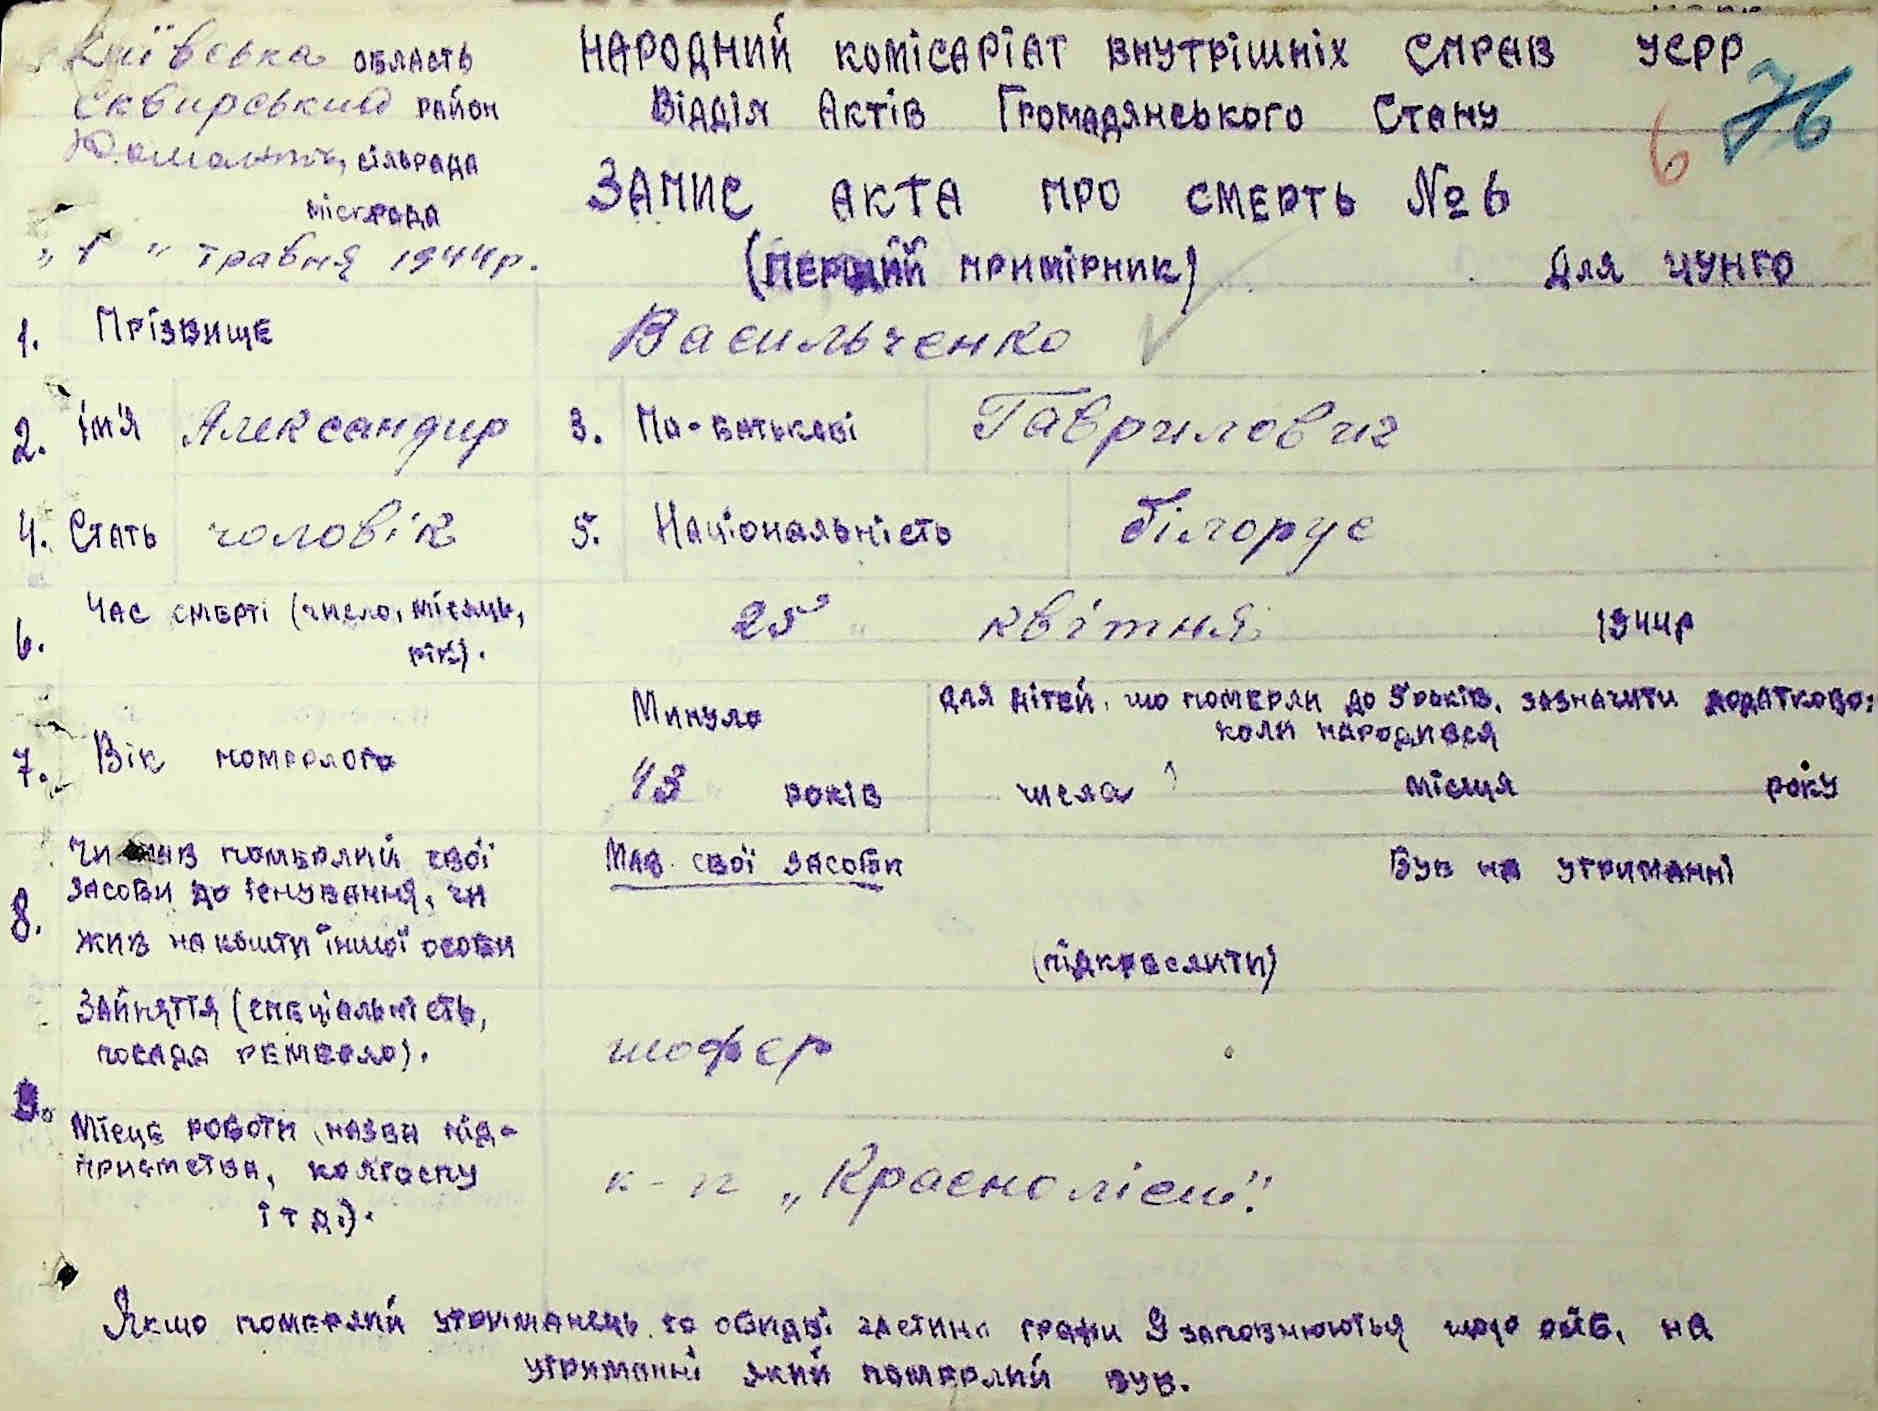 Київська область
Сквирський район
сільрада
міськрада
„ 1 " травня 1944р.
Народний комісаріат внутрішніх справ УСРР
Відділ Актів Громадянського Стану
6 76
Запис акта про смерть № 6
(перший примірник) Для ЦУНГО
1. Прізвище Васильченко
2. Ім'я Александир 3. По-батькові Гаврилович
4. Стать чоловік 5. Національність білорус
6. Час смерті (число, місяць, рік). 25 " квітня 1944р
7. Вік померлого Минуло 43 років
Для дітей, що померли до 5 років, зазначити додатково:
коли народився
числа місяця року
8. Чи мав померлий свої
засоби до існування, чи
жив на кошти іншої особи
Мав свої засоби Був на утриманні
(підкреслити)
9. Зайняття (спеціальність,
посада ремесло). шофер
Місце роботи (назва під-
приємства, колгоспу
і т д.). к-п „Краснолісы".
Якщо померлий утриманець то обидві частини графи 9 заповнюються щодо осіб, на
утриманні який померлий був.